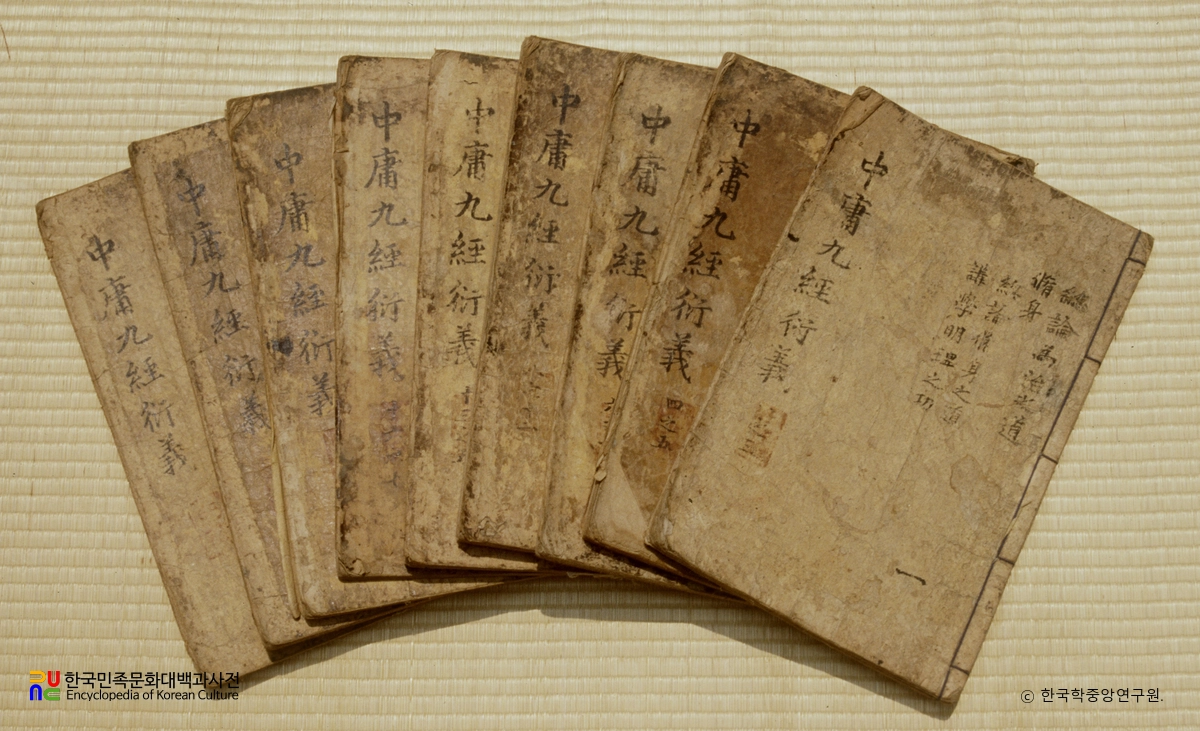 中庸九經衍義
中庸九經衍義
中庸九經衍義
中庸九經衍義
中庸九經衍義
中庸九經衍義
中庸九經衍義
中庸九經衍義
四之五
中庸九經衍義
總論爲治之道
脩身
經著脩身之道
講學明理之功
一
한국민족문화대백과사전
Encyclopedia of Korean Culture
ⓒ 한국학중앙연구원.